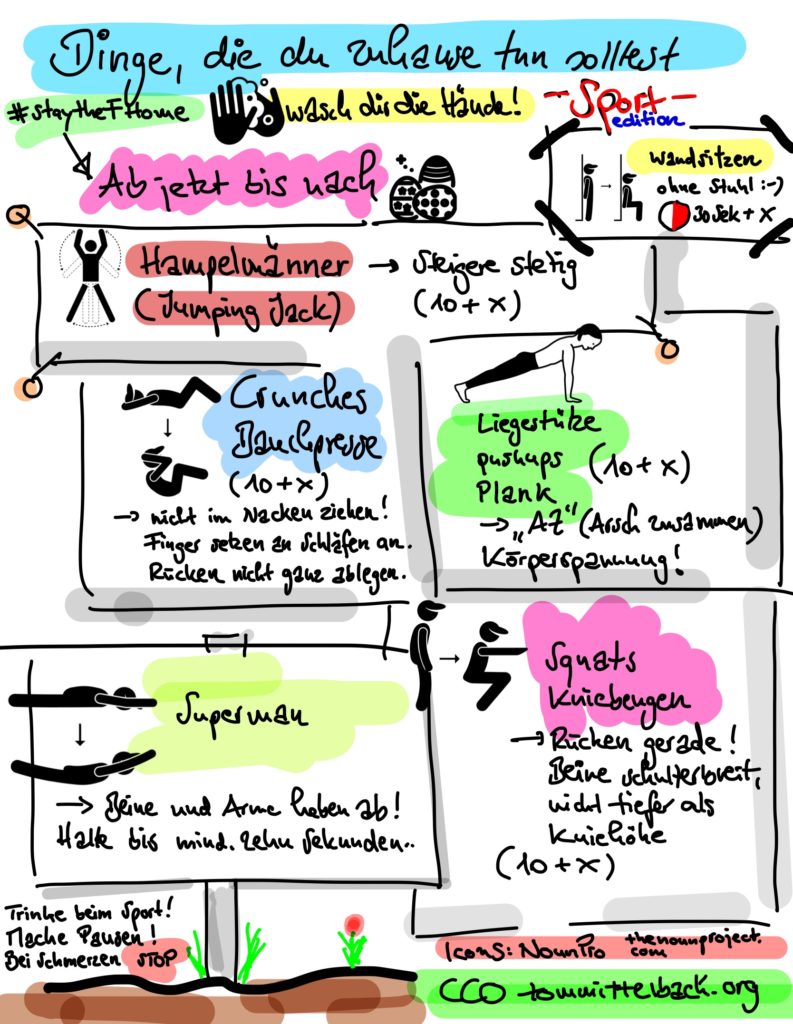 Dinge, die du zuhause tun solltest
#staytheFHome
wasch dir die Hände!
-Sport-
edition
Ab jetzt bis nach
Wandsitzen
ohne Stuhl :-)
30 Sek + X
Hampelmänner
(Jumping Jack)
→ Steigere stetig
(10 + X)
Crunches
Bauchpresse
(10 + X)
→ nicht im Nacken ziehen!
Finger setzen an Schläfen an.
Rücken nicht ganz ablegen.
Liegestütze
pushups
Plank
(10 + X)
→ „AZ“ (Arsch zusammen)
Körperspannung!
Superman
→ Beine und Arme heben ab!
Halte bis mind. zehn Sekunden..
Squats
Kniebeugen
→ Rücken gerade!
Beine schulterbreit,
nicht tiefer als
Kniehöhe
(10 + X)
Trinke beim Sport!
Mache Pausen!
Bei Schmerzen STOP
Icons: NounPro thenounproject.
com
CC0 tommittelbach.org